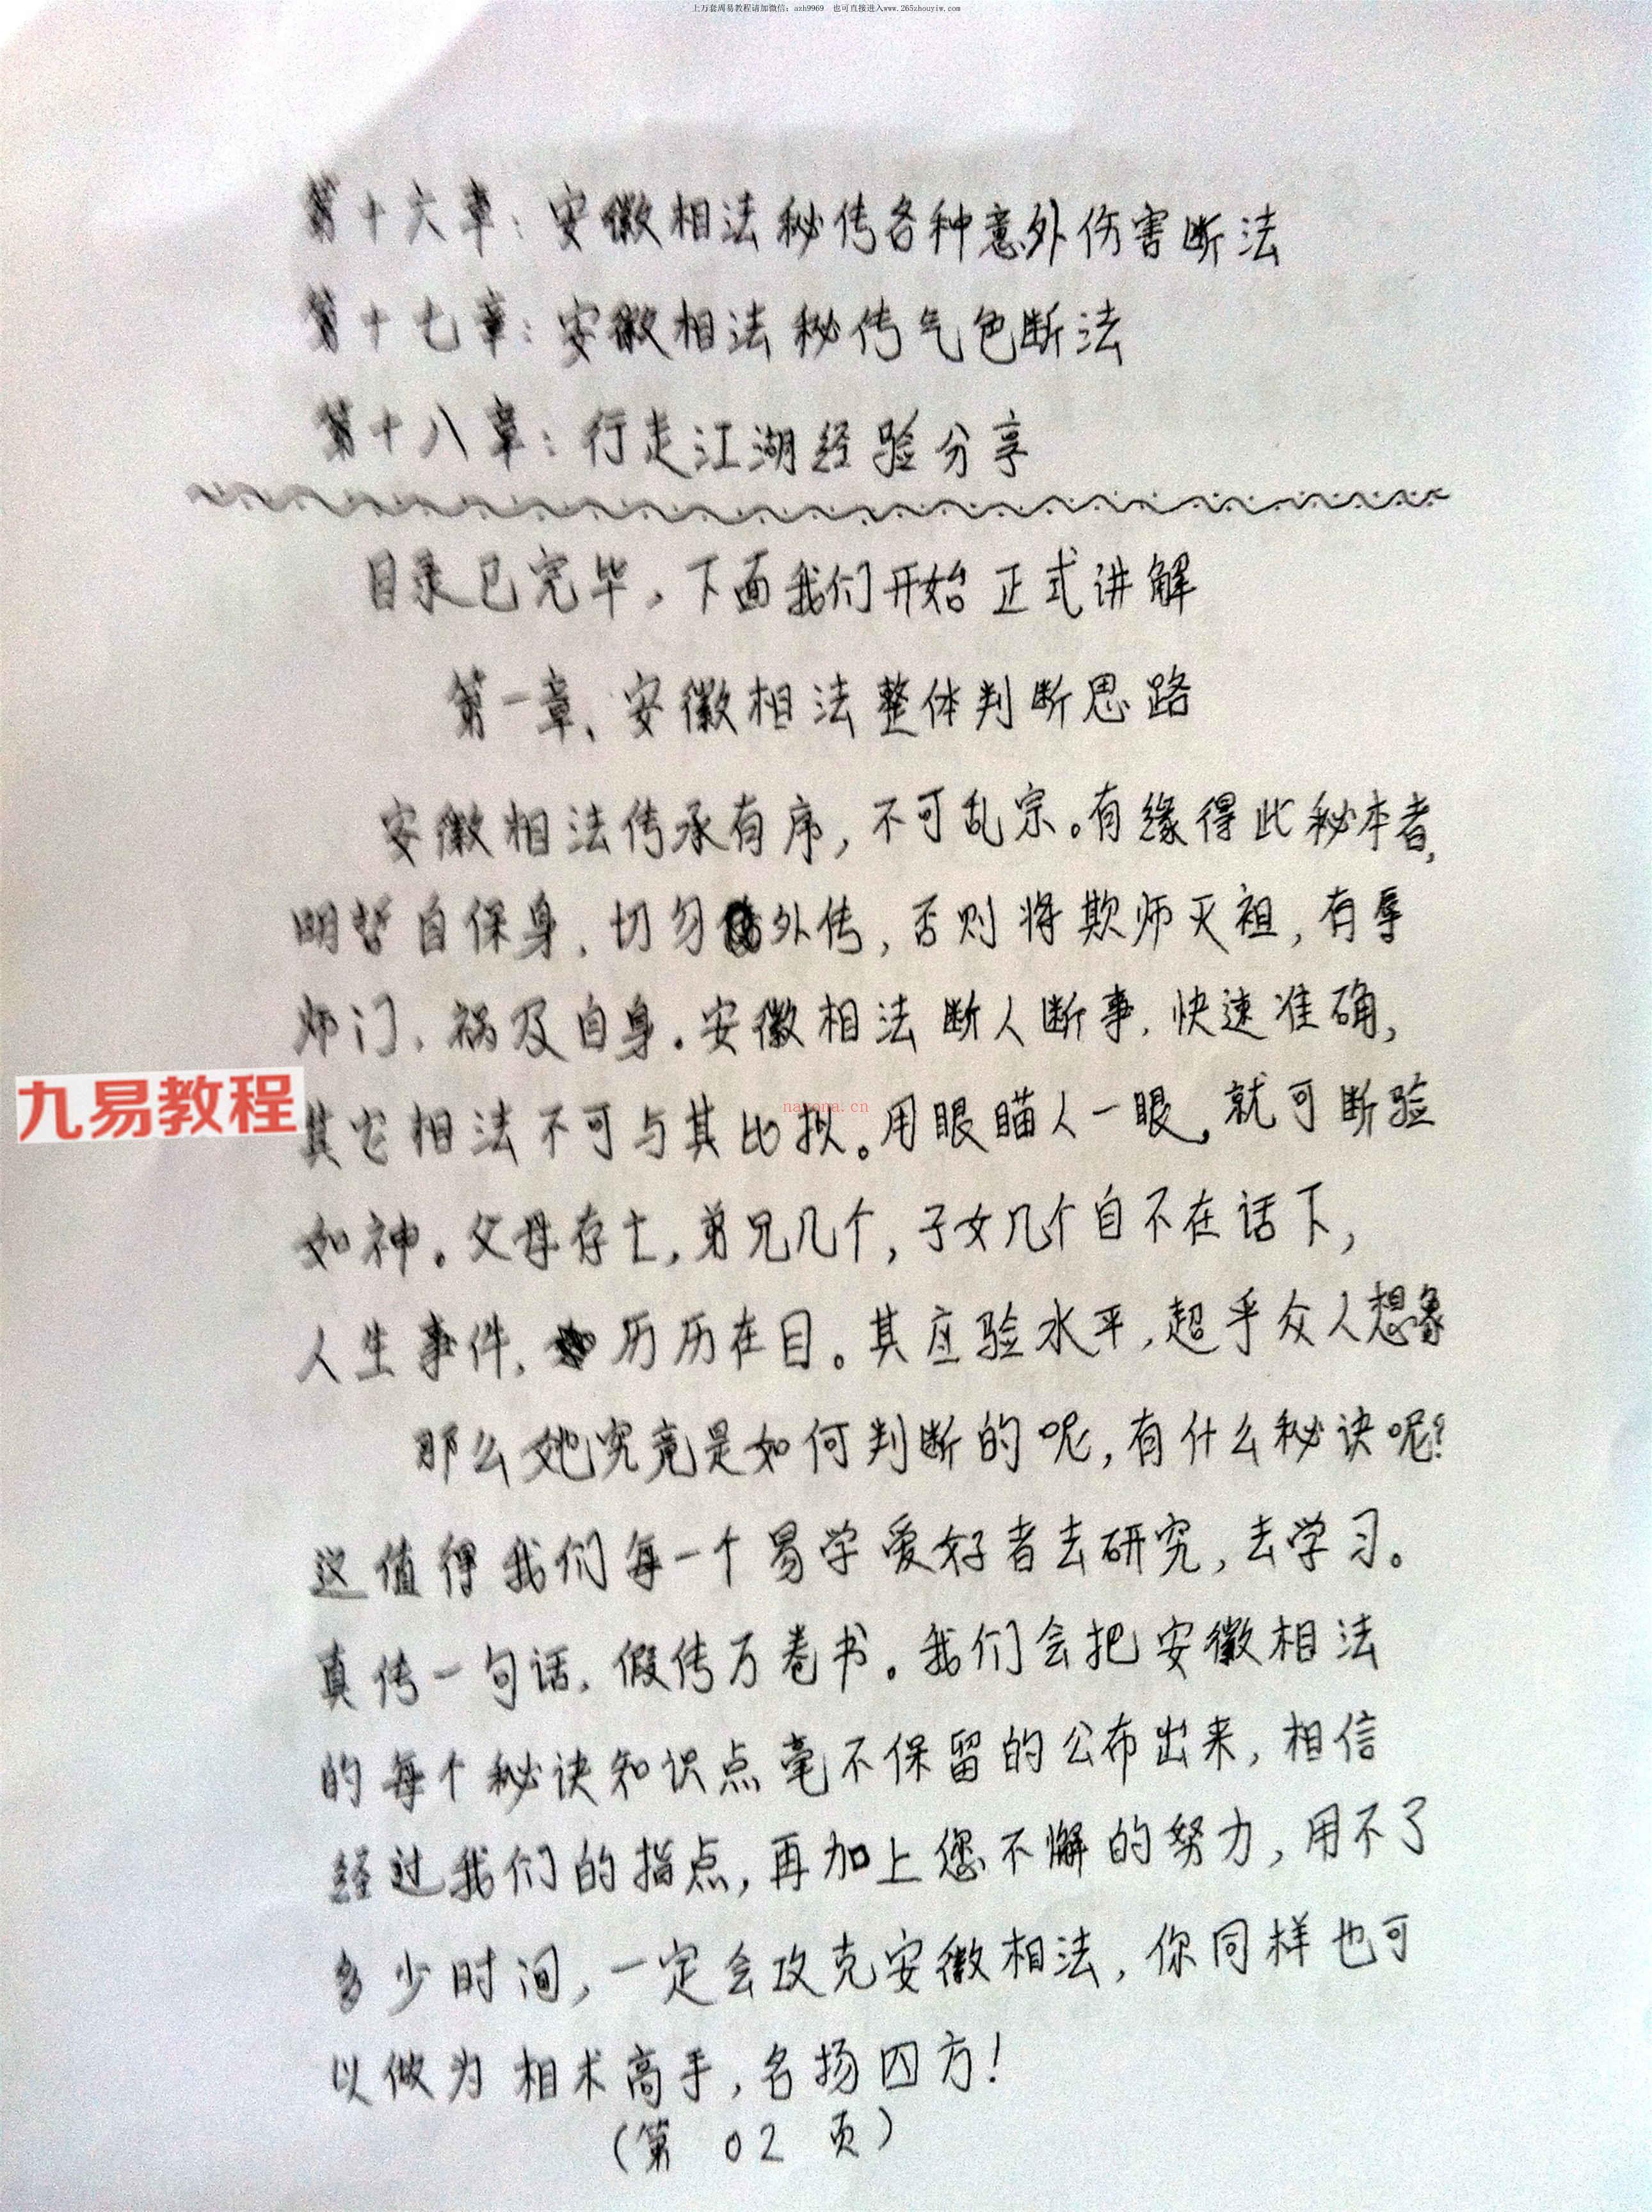 上万套周易教程请加微信：azh9969 也可直接进入www.265zhouyiw.com
第十六章：安徽相法秘传各种意外伤害断法
第十七章：安徽相法秘传气色断法
第十八章：行走江湖经验分享
目录已完毕，下面我们开始正式讲解
第一章、安徽相法整体判断思路
安徽相法传承有序，不可乱宗。有缘得此秘本者，
明哲自保身、切勿外传，否则将欺师灭祖，有辱
师门、祸及自身。安徽相法断人断事，快速准确，
九易教程
其它相法不可与其比拟。用眼瞄人一眼，就可断验
nayona.cn
如神。父母存亡，弟兄几个，子女几个自不在话下，
人生事件，历历在目。其应验水平，超乎众人想象
那么她究竟是如何判断的呢，有什么秘诀呢？
这值得我们每一个易学爱好者去研究，去学习。
真传一句话，假传万卷书。我们会把安徽相法
的每个秘诀知识点毫不保留的公布出来，相信
经过我们的指点，再加上您不懈的努力，用不了
多少时间，一定会攻克安徽相法，你同样也可
以做为相术高手，名扬四方！
（第 02 页）